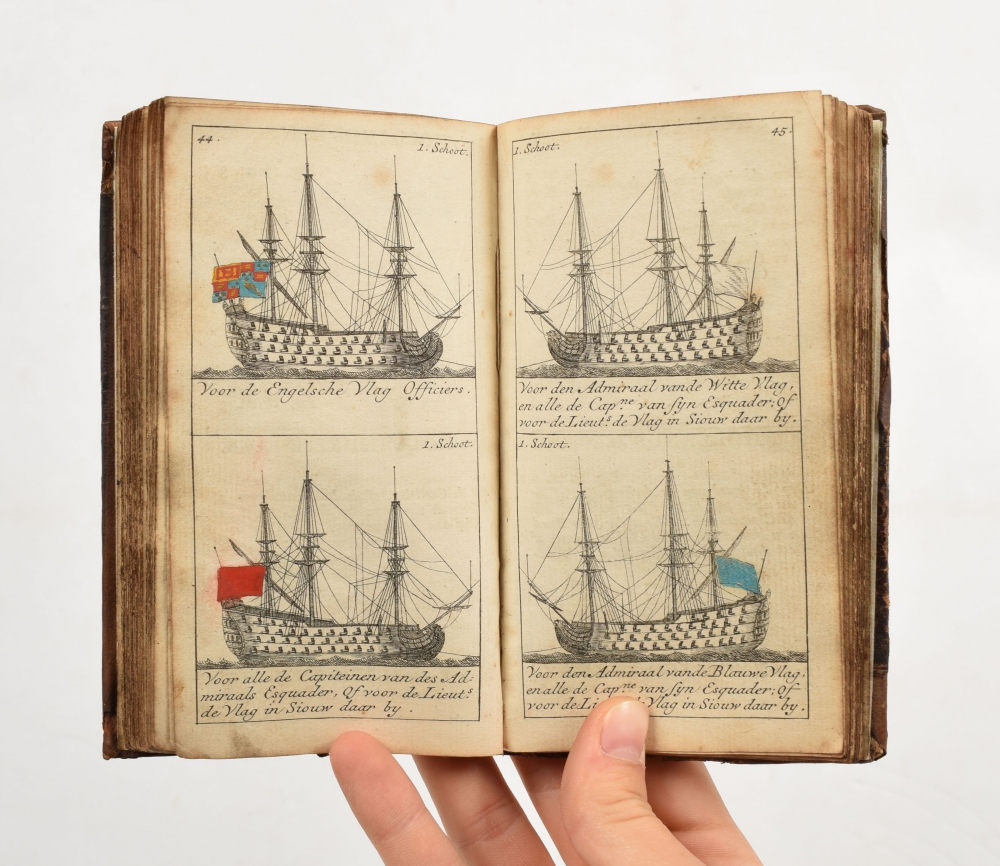 44.
1. Schoot.
Voor de Engelsche Vlag Officiers.
1. Schoot.
Voor alle de Capiteinen van des Ad-
miraals Esquader, Of voor de Lieut.s
de Vlag in Siouw daar by.
45.
1. Schoot.
Voor den Admiraal vande Witte Vlag,
en alle de Cap.ne van syn Esquader; Of
voor de Lieut.s de Vlag in Siouw daar by.
1. Schoot.
Voor den Admiraal vande Blauwe Vlag,
en alle de Cap.ne van syn Esquader; Of
voor de Vlag in Siouw daar by.